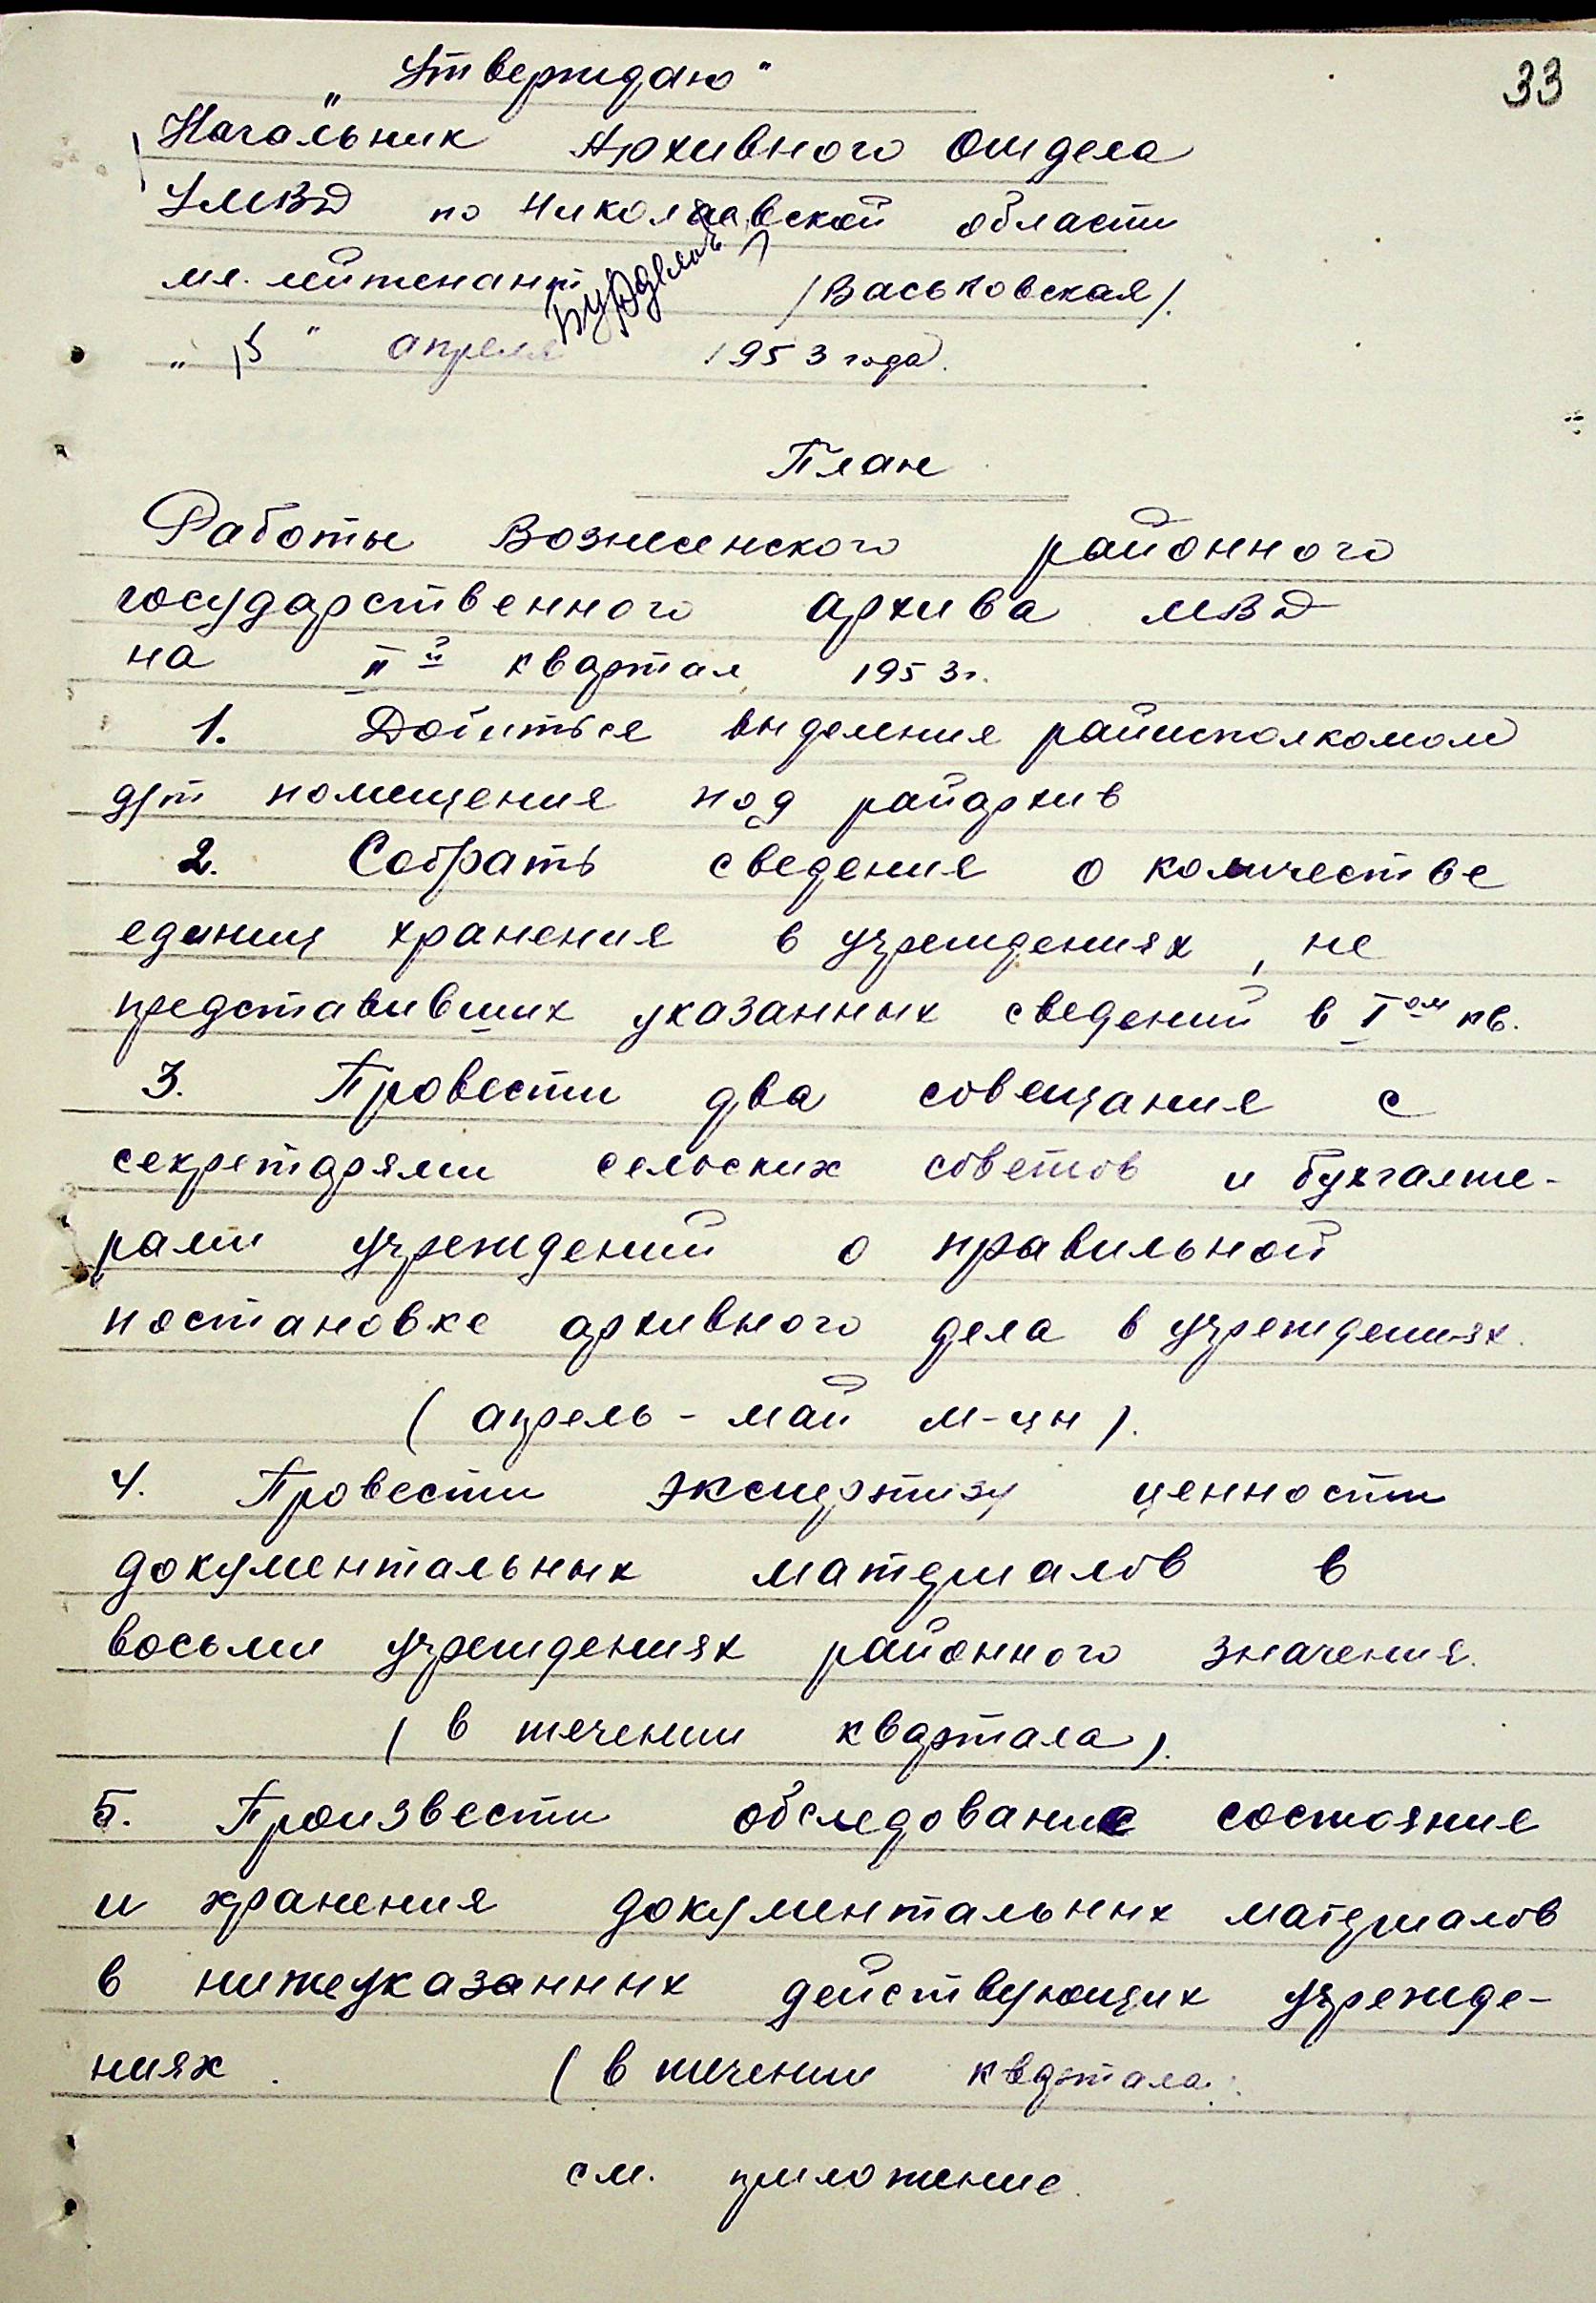 33
„Утверждаю"
Начальник Архивного Отдела
УМВД по Николаевской области
мл. лейтенант /Васьковская/.
„ 15 " апреля 1953 года.
План
Работы Вознесенского районного
государственного архива МВД
на II й квартал 1953 г.
1. Добиться выделения райисполкомом
помещения под райархив
2. Собрать сведения о количестве
единиц хранения в учреждениях, не
представивших указанных сведений в I ом кв.
3. Провести два совещания с
секретарями сельских советов и бухгалте-
рами учреждений о правильной
постановке архивного дела в учреждениях.
( апрель - май м-цы ).
4. Провести экспертизу ценности
документальных материалов в
восьми учреждениях районного значения.
( в течении квартала ).
5. Произвести обследование состояние
и хранения документальных материалов
в нижеуказанных действующих учрежде-
ниях. ( в течении квартала.
см. приложение.